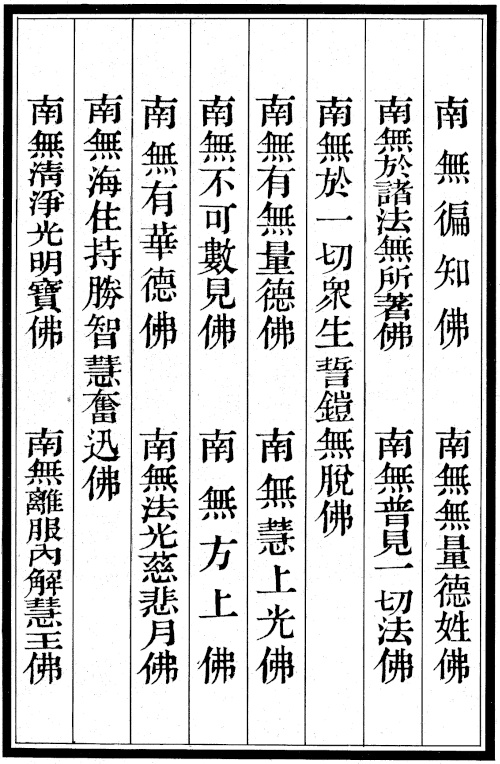 南無徧知佛　南無無量德姓佛
南無於諸法無所著佛　南無普見一切法佛
南無於一切眾生誓鎧無脫佛
南無有無量德佛　南無慧上光佛
南無不可數見佛　南無方上佛
南無有華德佛　南無法光慈悲月佛
南無海住持勝智慧奮迅佛
南無清淨光明寶佛　南無離服內解慧王佛